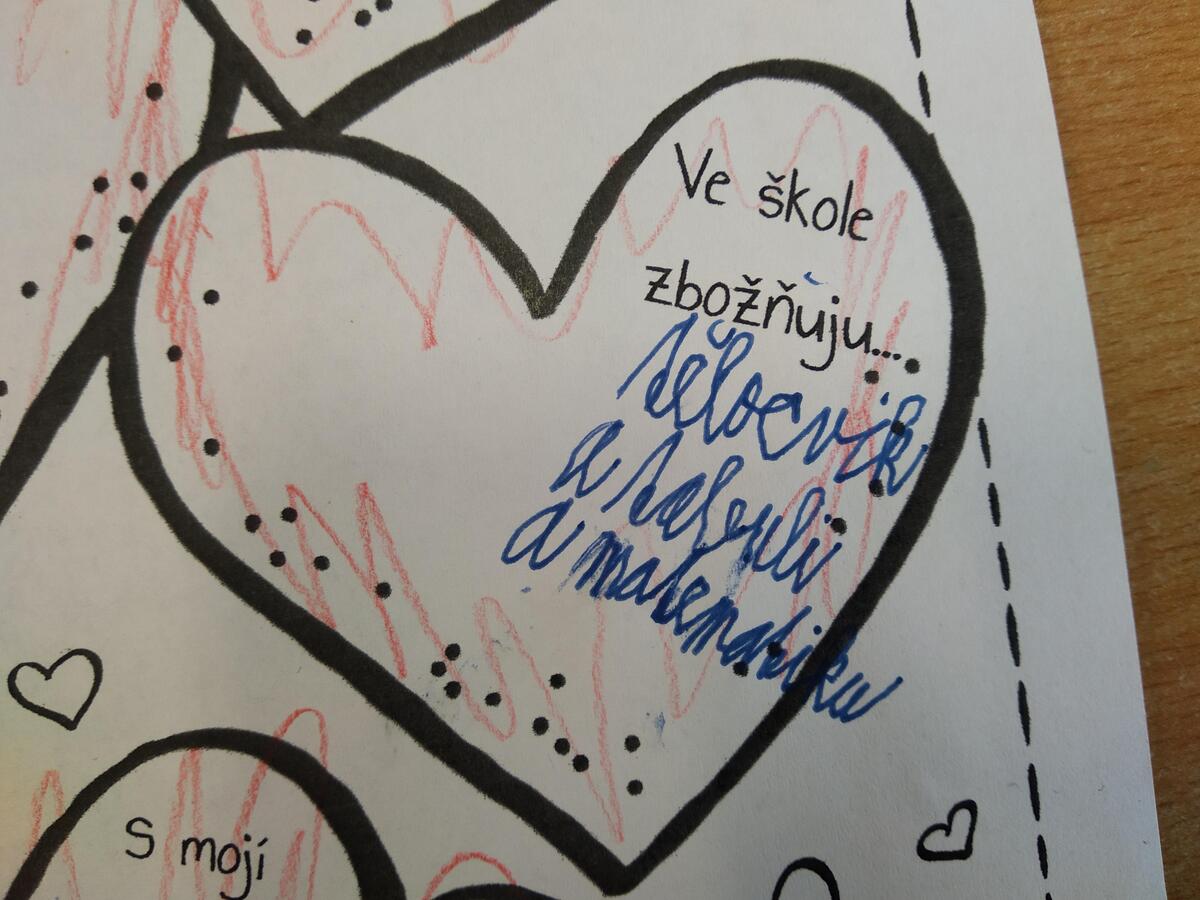 Ve škole
zbožňuju...
tělocvik
a
a matematiku
S mojí